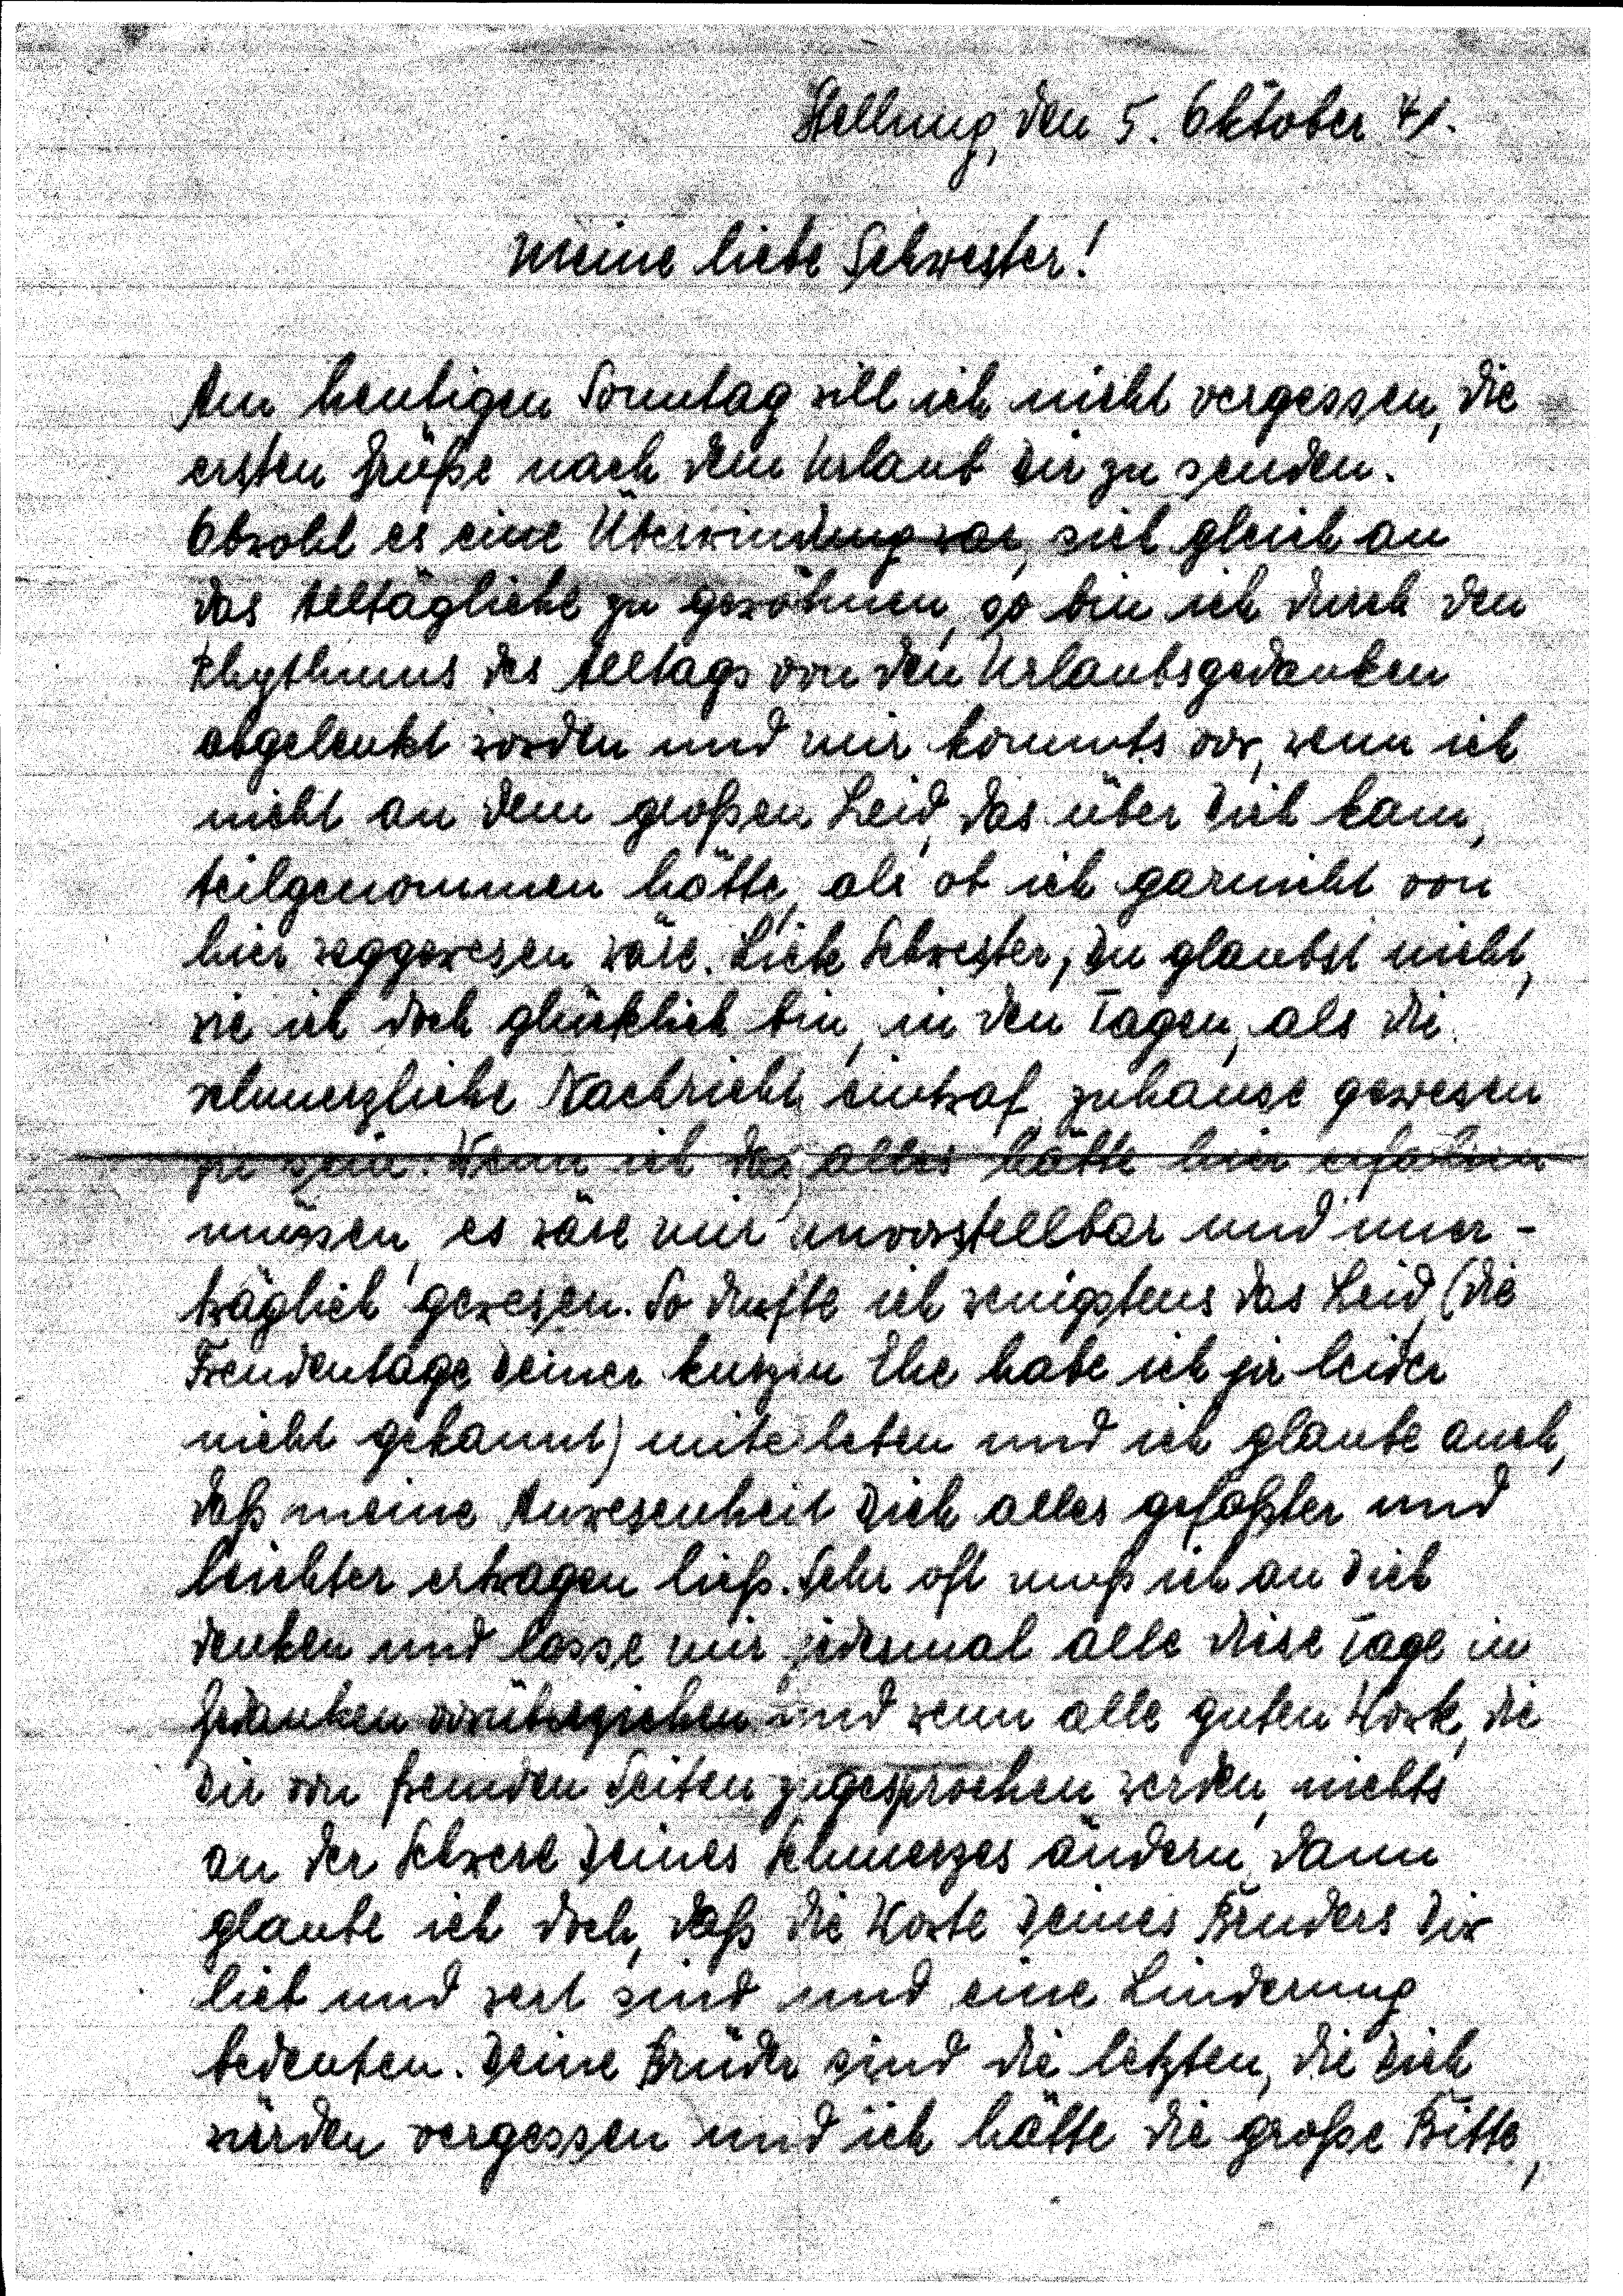 Stellung, den 5. Oktober 41.
Meine liebe Schwester!
Am heutigen Sonntag will ich nicht vergessen, die
ersten Grüße nach dem Urlaub Dir zu senden.
Obwohl es eine Überwindung war, sich gleich an
das Alltägliche zu gewöhnen, so bin ich durch den
Rhythmus des Alltags von den Urlaubsgedanken
abgelenkt worden und mir kommts vor, wenn ich
nicht an dem großen Leid, das über Dich kam,
teilgenommen hätte, als ob ich garnicht von
hier weggewesen wäre. Liebe Schwester, Du glaubst nicht,
wie ich doch glücklich bin, in den Tagen, als die
schmerzliche Nachricht eintraf, zuhause gewesen
zu sein. Wenn ich das alles hätte hier erfahren
müssen, es wäre mir unvorstellbar und uner-
träglich gewesen. So durfte ich wenigstens das Leid, (die
Freudentage Deiner kurzen Ehe habe ich ja leider
nicht gekannt) miterleben und ich glaube auch,
daß meine Anwesenheit Dich alles gefaßter und
leichter ertragen ließ. Sehr oft muß ich an Dich
denken und lasse mir jedesmal alle diese Tage im
Gedanken vorüberziehen und wenn alle guten Worte, die
Dir von fremden Seiten zugesprochen werden, nichts
an der Schwere Deines Schmerzes ändern, dann
glaube ich doch, daß die Worte Deines Bruders Dir
lieb und wert sind und eine Linderung
bedeuten. Deine Brüder sind die letzten, die Dich
würden vergessen und ich hätte die große Bitte,